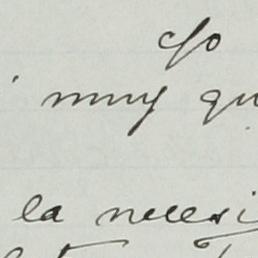 c/o
muy qu
la necesi